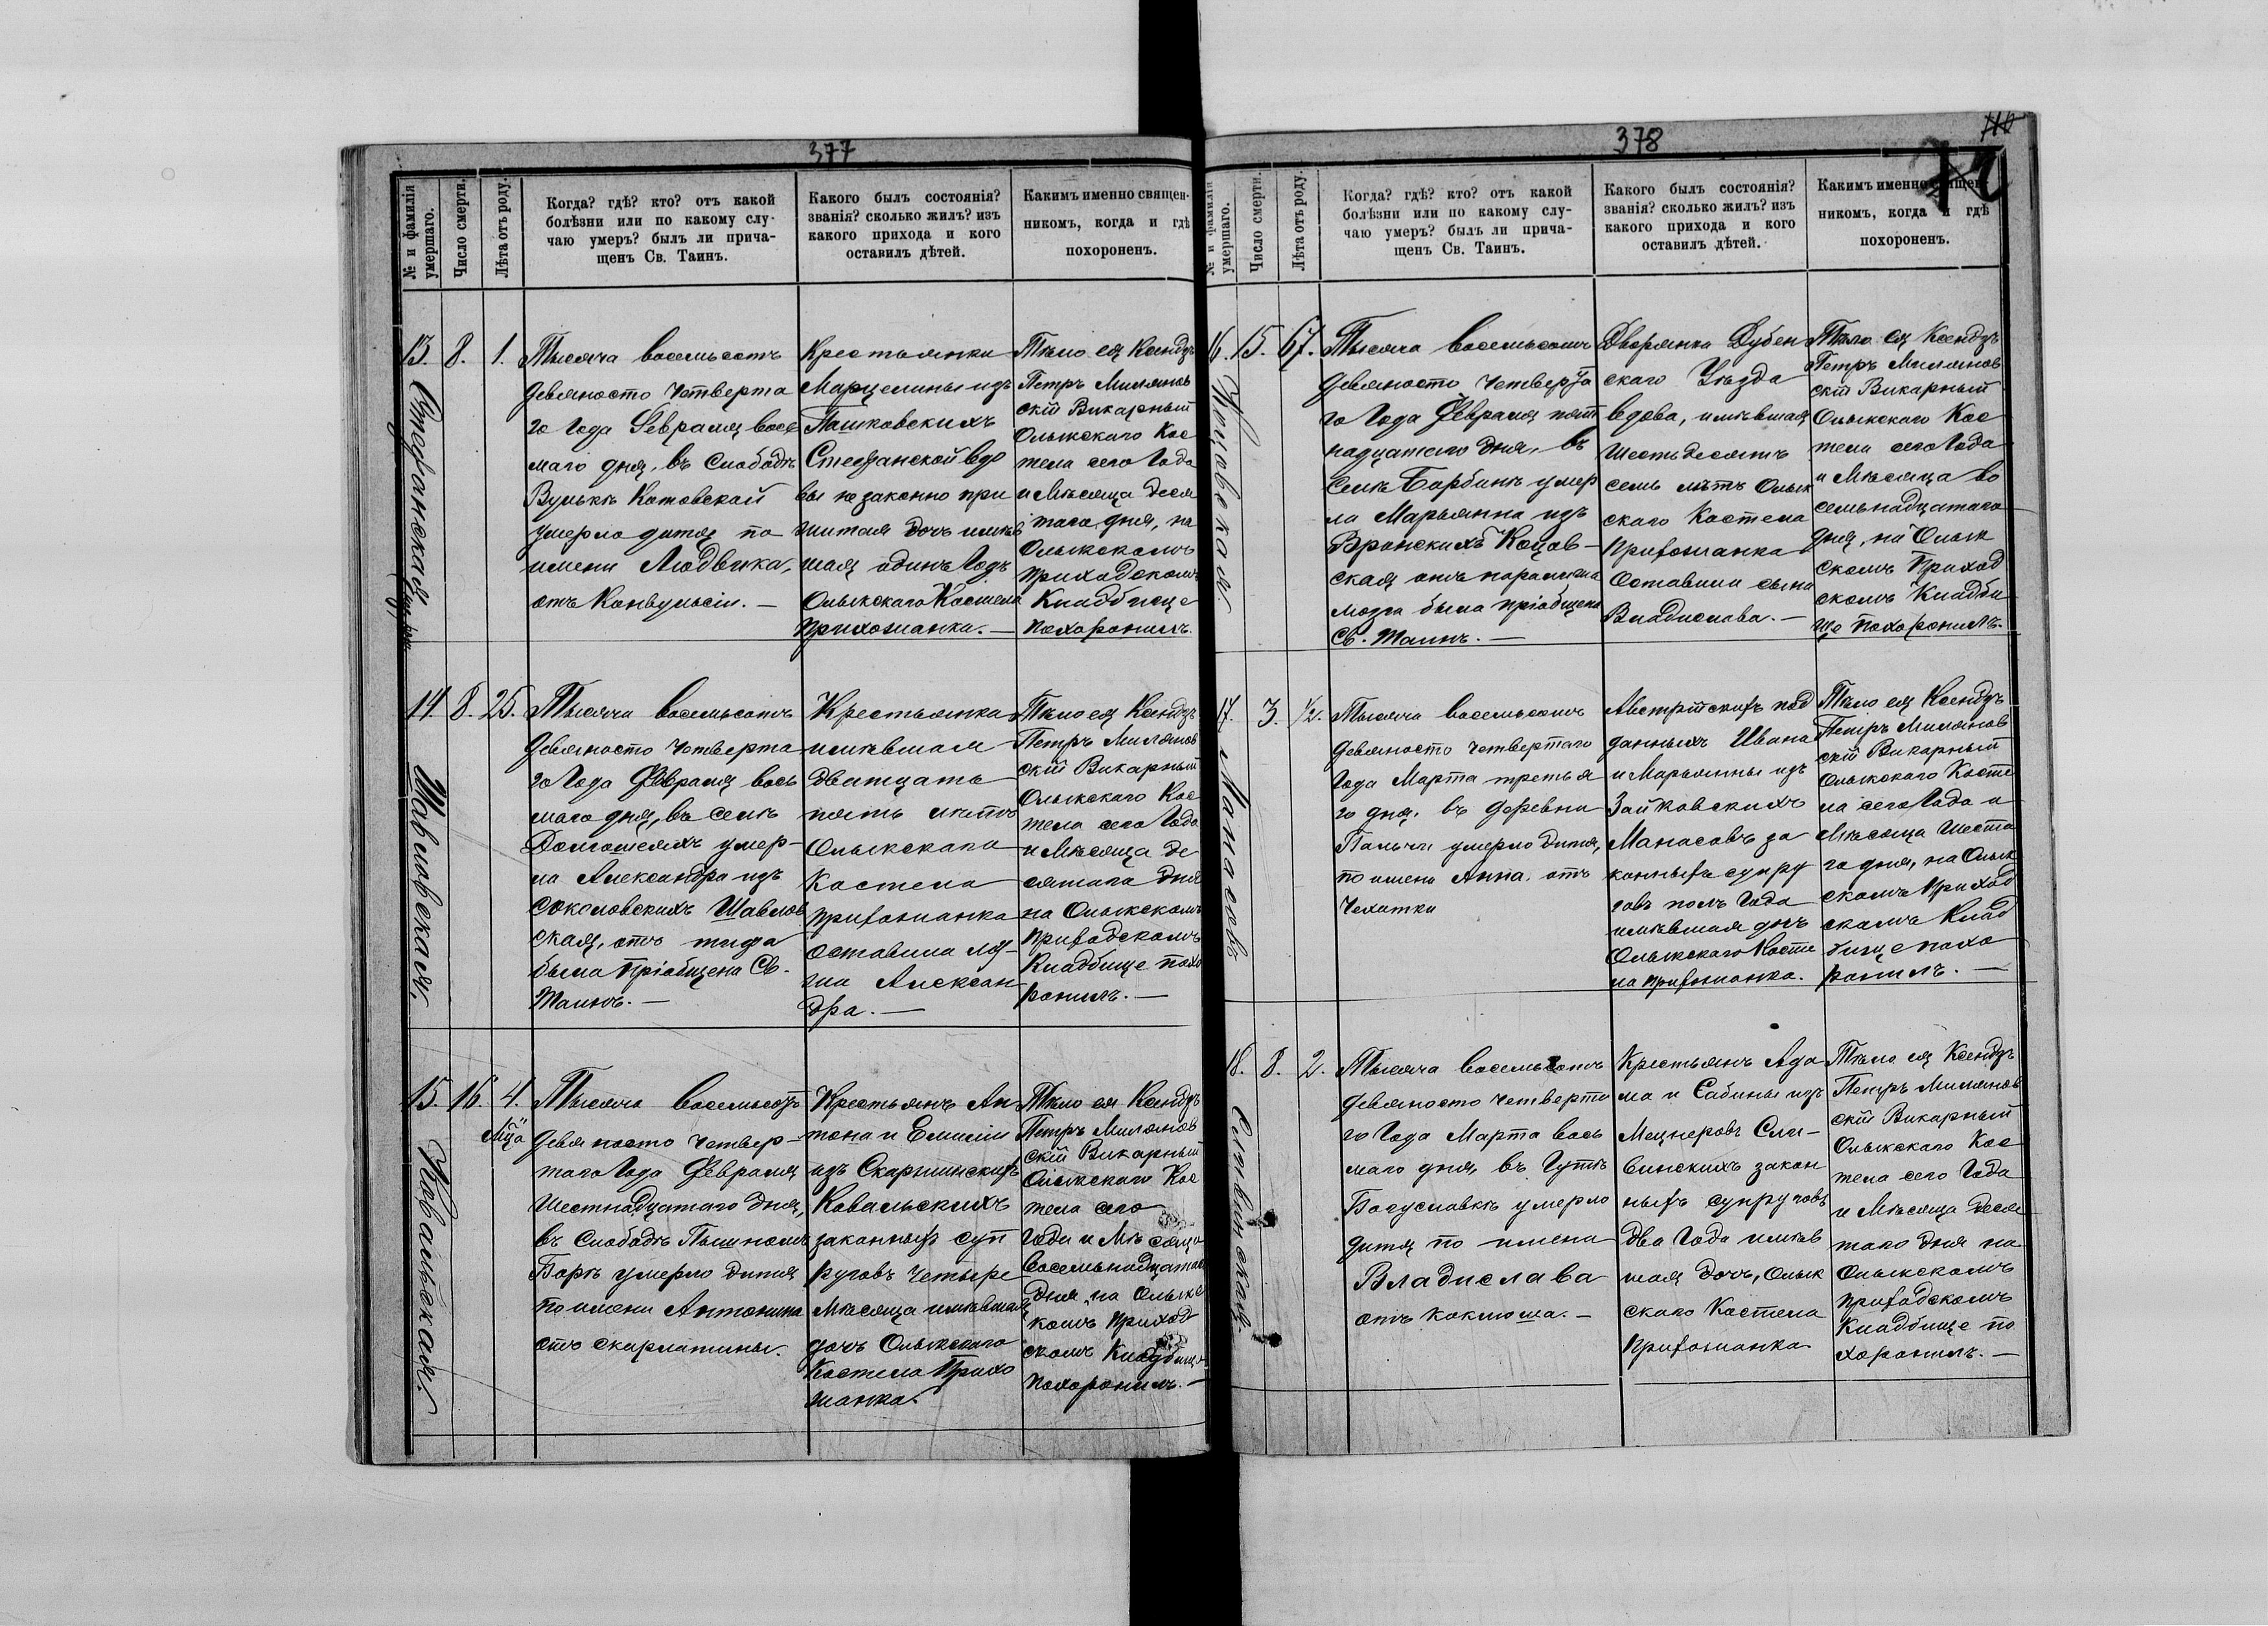 377
№ и фамилія умершаго.
Число смерти.
Лѣта отъ роду.
Когда? гдѣ? кто? отъ какой
болѣзни или по какому слу-
чаю умеръ? былъ ли прича-
щенъ Св. Таинъ.
Какого былъ состоянія?
званія? сколько жилъ? изъ
какого прихода и кого
оставилъ дѣтей.
Какимъ именно священ-
никомъ, когда и гдѣ
похороненъ.
13.
Стефанская
8.
1.
Тысяча восемьсотъ
девяносто четверта
го Года Февраля вось
маго дня, въ Слободѣ
Вулькѣ Котовской
умерло дитя по
имени Людвика,
отъ Конвульсіи. —
Крестьянки
Марцелины изъ
Пашковскихъ
Стефанской вдо
вы незаконно при
житая дочь имѣв
шая одинъ Годъ
Олыкского Костела
Прихожанка. —
Тѣло ея Ксендзъ
Петръ Миляновъ
скій Викарный
Олыкскаго Кос
тела сего Года
и Мѣсяца деся
таго дня, на
Олыкскомъ
Приходскомъ
Кладбище
Похоронилъ.
14.
Шавловская.
8.
25.
Тысяча восемьсотъ
Девяносто Четверта
го Года Февраля вось
маго дня, въ селѣ
Долгошеяхъ умер-
ла Александра изъ
Соколовскихъ Шавлов
ская, отъ тифа
была Пріобщена Св.
Таинъ. —
Крестьянка
имѣвшая
двадцать
пять лѣтъ
Олыкскаго
Костела
прихожанка
оставила му-
жа Алексан
дра. —
Тѣло ея Ксендзъ
Петръ Милянов
скій Викарный
Олыкскаго Кос
тела сего Года
и Мѣсяца де
сятаго дня
на Олыкскомъ
Приходскомъ
Кладбище похо
ронилъ. —
15.
Ковальская.
16.
4.
Мца
Тысяча восемьсотъ
Девяносто Четвер-
таго Года Февраля
Шестнадцатаго дня,
въ Слободѣ Пышномъ
Боркѣ умерло дитя
по имени Антонина
отъ скарлатины.
Крестьянъ Ан
тона и Емиліи
изъ Скаржинскихъ
Ковальскихъ
законныхъ суп
руговъ Четыре
Мѣсяца имѣвшая
дочь Олыкскаго
Костела Прихо
жанка.
Тѣло ея Ксендзъ
Петръ Милянов
скій Викарный
Олыкскаго Кос
тела сего
Года и Мѣсяца
Восемьнадцатаго
Дня, на Олыкс
комъ Приход
скомъ Кладбище
Похоронилъ. —
378
№ и фамилія умершаго.
Число смерти.
Лѣта отъ роду.
Когда? гдѣ? кто? отъ какой
болѣзни или по какому слу-
чаю умеръ? былъ ли прича-
щенъ Св. Таинъ.
Какого былъ состоянія?
званія? сколько жилъ? изъ
какого прихода и кого
оставилъ дѣтей.
Какимъ именно священ-
никомъ, когда и гдѣ
похороненъ.
16.
15.
67.
Тысяча восемьсотъ
девяносто четверта
го Года Февраля пят
надцатаго дня, въ
Селѣ Борбинѣ умер
ла Марьянна изъ
Вронскихъ Коцов-
ская отъ паралича
мозга была пріобщена
Св. Таинъ. —
Дворянка Дубен
скаго Уѣзда
вдова, имѣвшая
Шестьдесятъ
семь лѣтъ Олык
скаго Костела
прихожанка
Оставила сына
Владислава. —
Тѣло ея Ксендзъ
Петръ Милянов
скій Викарный
Олыкскаго Кос
тела сего Года
и Мѣсяца во
семьнадцатаго
дня, на Олык
скомъ Приход
скомъ Кладби
ще Похоронилъ.
17.
Манасовъ
3.
1/2.
Тысяча восемьсотъ
девяносто четвертаго
Года Марта третья
го дня, въ деревни
Пальчи умерло дитя,
по имени Анна, отъ
Чахотки
Австрійскихъ под
данныхъ Ивана
и Марьянны изъ
Зайковскихъ
Манасовъ за
конныхъ супру
говъ полъ Года
имѣвшая дочь
Олыкскаго Косте
ла прихожанка.
Тѣло ея Ксендзъ
Петръ Милянов
скій Викарный
Олыкскаго Косте
ла сего Года и
Мѣсяца Шеста
го дня, на Олык
скомъ Приход
скомъ Клад
бище похо
ронилъ. —
18.
Сливинская.
8.
2.
Тысяча восемьсотъ
девяносто четверта
го Года Марта вось
маго дня, въ Гутѣ
Богуславкѣ умерло
дитя по имени
Владислава
отъ коклюша. —
Крестьянъ Ада
ма и Сабины изъ
Мецнеровъ Сли-
винскихъ закон
ныхъ супруговъ
Два Года имѣв
шая дочь, Олык
скаго Костела
прихожанка
Тѣло ея Ксендзъ
Петръ Милянов
скій Викарный
Олыкскаго Кос
тела сего Года
и Мѣсяца деся
таго дня на
Олыкскомъ
приходскомъ
Кладбище по
хоронилъ. —